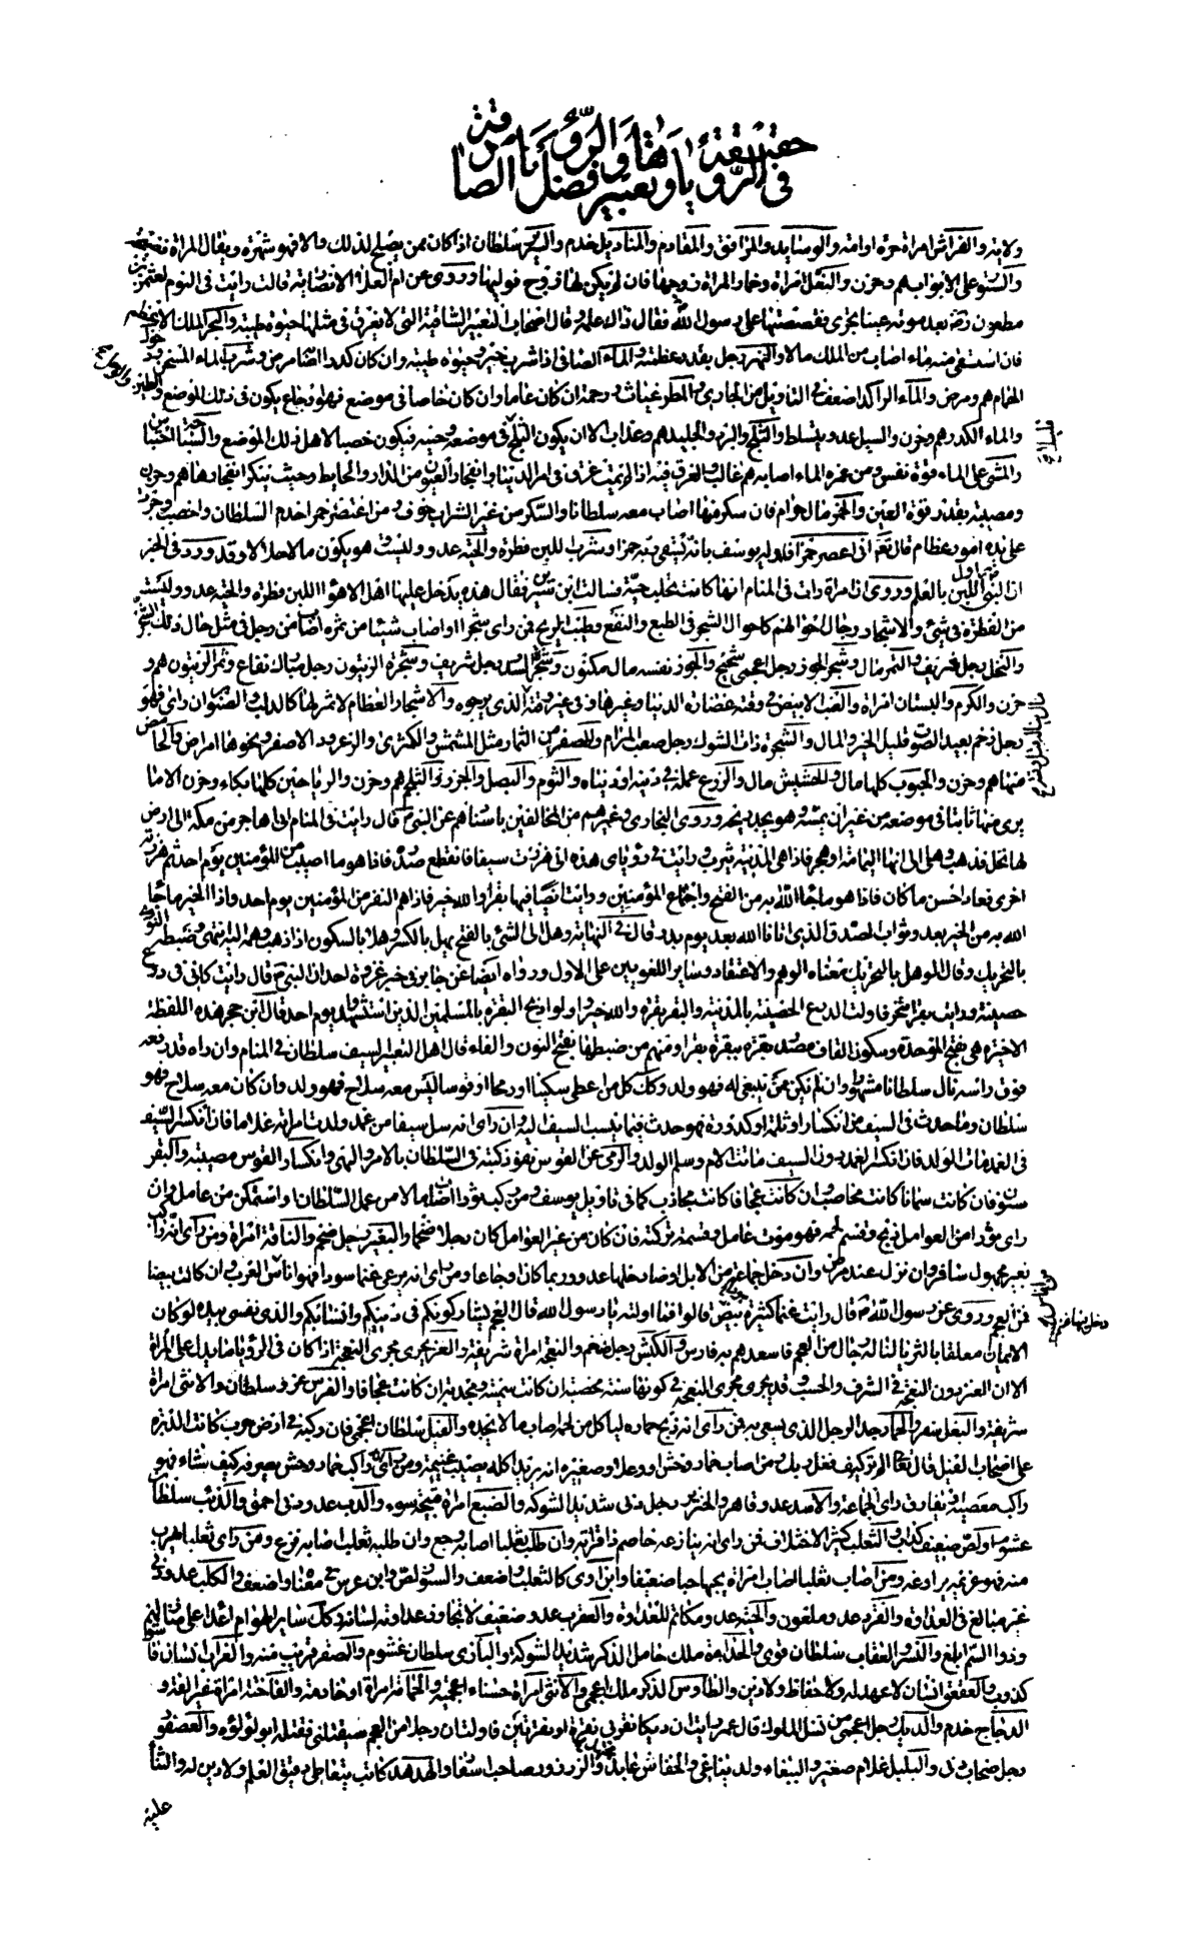 حقيقة الرؤيا وتعبيرها وفضل الرؤيا الصادقة
في
ولاية والفراش امراة حرة او امة والوسايد والمرافق والمقادم والمناديل خدم والسرير سلطان اذا كان ممن يصلح لذلك والا فهو شهرة ويقال امراة
والستر على الأبواب هم وحزن والنعل امراة وخمار المراة زوجها فان لم يكن لها زوج فوليها وروى عن ام العلاء الانصارية قالت رايت في النوم لعثمن بن
مظعون رة بعد موته عينا تجرى فقصصتها على رسول الله ص فقال ذاك عمله وقال اصحاب التعبير الساقية التي لا يغرق في مثلها حيوة طيبة والبحر الملك الاعظم
فان استقى منه ماء اصاب من الملك مالا والنهر رجل بقدر عظمه والماء الصافي اذا شرب خير وحيوة طيبة وان كان كدرا اصابه مرض وشرب الماء المسخن ودخول
الحمام هم ومرض والماء الراكد اضعف في التاويل من الجاري والمطر غياث ورحمة ان كان عاما وان كان خاصا في موضع فهو اوجاع يكون في ذلك الموضع والطين والوحل
والماء الكدر هم وحزن والسيل عدو يتسلط والثلج والبرد والجليد هم وعذاب الا ان يكون الثلج في موضعه وحينه فيكون خصبا لاهل ذلك الموضع والسباحة
والمشى على الماء قوة نفس ومن غمره الماء اصابه هم غالب والغرق فيه اذا لم يمت غرق في امر الدنيا وانفجار العيون من الدار والحايط وحيث ينكر انفجارها هم وحزن
ومصيبة بقدر قوة العين والخمر مال حرام فان سكر منها اصاب معه سلطانا والسكر من غير الشراب خوف ومن اعتصر خمرا خدم السلطان واخصب وجرت
على يده امور عظام قال تعم انى اعصر خمرا فاوله يوسف بانه يسقى ربه خمرا وشرب اللبن فطرة والحية عدو وليست هو يكون مالا حلالا وقد ورد في الخبر
ان النبي ص اول اللبن بالعلم وروى ان امراة رات في المنام انها كانت تحلب حية فسالت ابن سيرين فقال هذه يدخل عليها اهل الاهواء اللبن فطرة والحية عدو وليست
من الفطرة في شئ والاشجار رجال احوالهم كاحوال الشجر في الطبع والنفع وطيب الريح فمن راى شجرا او اصاب شيئا من ثمره اصاب من رجل في مثل حال ذلك الشجر
والنخل رجل شريف والتمر مال وشجر الجوز رجل اعجمي شحيح والجوز نفسه مال مكنون وشجر السدر رجل شريف وشجرة الزيتون رجل مبارك نفاع وثمر الزيتون هم و
حزن والكرم والبستان امراة والعنب الابيض في وقته غضارة الدنيا وخيرها وفي غير وقته مال ينال قبل الذي يرجوه والاشجار العظام لا ثمر لها كالدلب والصنوبر ان راى فهو
رجل ضخم بعيد الصوت قليل الخير والمال والشجرة ذات الشوك رجل صعب المرام والصفر من الثمار مثل المشمش والكمثرى والزعرور الاصفر ونحوها امراض والحامض
منها هم وحزن والحبوب كلها مال والحشيش مال والزرع عمله في دينه او دنياه والثوم والبصل والجزر والشلجم هم وحزن والرياحين كلها بكاء وحزن الا ما
يرى منها ثابتا في موضعه من غير ان يمسه وهو يجد ريحه وروى البخارى وغيره من المخالفين باسنادهم عن النبي ص قال رايت في المنام انى اهاجر من مكة الى ارض
بها نخل فذهب وهلى الى انها اليمامة او هجر فاذا هي المدينة يثرب ورايت في رؤياى هذه انى هززت سيفا فانقطع صدره فاذا هو ما اصيب من المؤمنين يوم احد ثم هززته
اخرى فعاد احسن ما كان فاذا هو ما جاء الله به من الفتح واجتماع المؤمنين ورايت ايضا فيها بقرا والله خير فاذا هم النفر من المؤمنين يوم احد واذا الخير ما جاء
الله به من الخير بعد وثواب الصدق الذي اتانا الله بعد يوم بدر قال في النهاية وهل الى الشئ بالفتح يهل بالكسر وهلا بالسكون اذا ذهب وهمه اليه انتهى وضبطه النووى
بالتحريك وقال الوهل بالتحريك معناه الوهم والاعتقاد وساير اللغويين على الاول ورواه ايضا عن جابر في خبر غزوة احد ان النبي ص قال رايت كانى في درع
حصينة ورايت بقرا تنحر فاولت الدرع الحصينة بالمدينة والبقر بقرة والله خير واولوا ذبح البقرة بالمسلمين الذين استشهدوا يوم احد قال ابن حجر هذه اللفظة
الاخيرة هي بفتح الموحدة وسكون القاف مصدر بقره يبقره بقرا ومنهم من ضبطها بفتح النون والفاء قال اهل التعبير السيف سلطان في المنام وان راه قد رفعه
فوق راسه نال سلطانا مشهورا وان لم يكن ممن ينبغى له فهو ولد وكذلك كل من اعطى سكينا او رمحا او قوسا ليس معه سلاح فهو ولد فان كان معه سلاح فهو
سلطان وما حدث في السيف من انكسار او ثلمة او كدورة فهو حدث فيما ينسب السيف اليه وان راى انه سل سيفا من غمد ولدت امراته غلاما فان انكسر السيف
في الغمد مات الولد فان انكسر الغمد دون السيف ماتت الام وسلم الولد والرمى عن القوس نفوذ كتبه في السلطان بالامر والنهى وانكسار القوس مصيبة والبقر
سنون فان كانت سمانا كانت مخاصيب وان كانت عجافا كانت مجاديب كما في تاويل يوسف ومن ركب ثورا اصاب مالا من عمل السلطان او استمكن من عامل وان
راى ثورا من العوامل ذبح وقسم لحمه فهو موت عامل وقسمة تركته فان كان من غير العوامل كان رجلا ضخما والبعير رجل ضخم والناقة امراة ومن راى انه راكب
بعير مجهول سافر وان نزل عنه مرض وان دخل جماعة من الابل ارضا دخلها عدو وربما كان اوجاعا ومن راى انه يرعى غنما سودا فهو اناس العرب وان كانت بيضا
فمن العجم وروى عن رسول الله ص قال رايت غنما كثيرة سودا دخل فيها غنم بيض قالوا فما اولته يا رسول الله قال العجم يشاركونكم في دينكم وانسابكم والذى نفسى بيده لو كان
الايمان معلقا بالثريا لناله رجال من العجم فاسعدهم به فارس والكبش رجل ضخم والنعجة امراة شريفة والعنز يجرى مجرى النعجة اذا كان في الرؤيا ما يدل على المراة
الا ان العنز دون النعجة في الشرف والحسب وقد يجرى مجرى النعجة في كونها سنة مخصبة ان كانت سمينة ومجدبة ان كانت عجافا والفرس عز وسلطان والانثى امراة
شريفة والبغل سفر والحمار جد الرجل الذى يسعى به فمن راى انه ذبح حماره لياكل من لحمه اصاب مالا بجده والفيل سلطان اعجمي فان ركبه في ارض حرب كانت الدبرة
على اصحاب الفيل قال تعالى الم تر كيف فعل ربك ومن اصاب حمار وحش او وعلا وصغيره انه يريد اكله يصيب غنيمة ومن راى انه راكب حمار وحش يصرفه كيف يشاء فهو
راكب معصية او يفارق راى الجماعة والاسد عدو قاهر والخنزير رجل دنى شديد الشوكة والضبع امراة قبيحة سوء والدب عدو دنى احمق والذئب سلطان
غشوم او لص ضعيف كذاب والثعلب كثير الاختلاف فمن راى انه ينازعه خاصم ذا قرابة وان طلب ثعلبا اصابه وجع وان طلبه ثعلب اصابه فزع ومن راى ثعلبا يهرب
منه فهو غريمه يراوغه ومن اصاب ثعلبا اصاب امراة يحبها حبا ضعيفا وابن اوى كالثعلب واضعف والسنور لص وابن عرس في معناه واضعف والكلب عدو دنى
غير مبالغ في العداوة والقرد عدو ملعون والحية عدو مكاتم للعداوة والعقرب عدو ضعيف لا تجاوز عداوته لسانه وكذلك ساير الهوام اعداء على منازلهم
وذو السم ابلغ والنسر والعقاب سلطان قوى والحداة ملك خامل الذكر شديد الشوكة والبازى سلطان غشوم والصقر قريب منه والغراب انسان فاسق
كذوب والعقعق انسان لا عهد له ولا حفاظ ولا دين والطاوس الذكر ملك اعجمي والانثى امراة حسناء اعجمية والحمامة امراة او خادمة والفاختة امراة غير الفة و
الدجاج خدم والديك رجل اعجمي من نسل الملوك قال عمر رايت ان ديكا نقرنى نقرة او نقرتين فاولت ان رجلا من العجم سيقتلنى فقتله ابو لؤلؤه والعصفور
رجل صخاب دنى والبلبل غلام صغير والببغاء ولد يناغى والخفاش عابد والزرزور صاحب اسفار والهدهد كاتب يتعاطى دقيق العلم ولا دين له والثناء
عليه